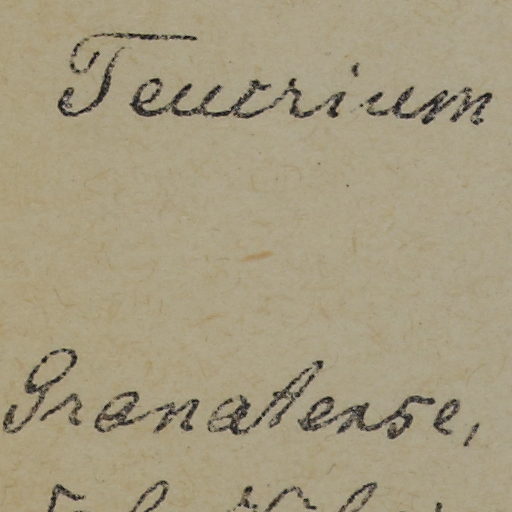 Teucrium
Granatense,